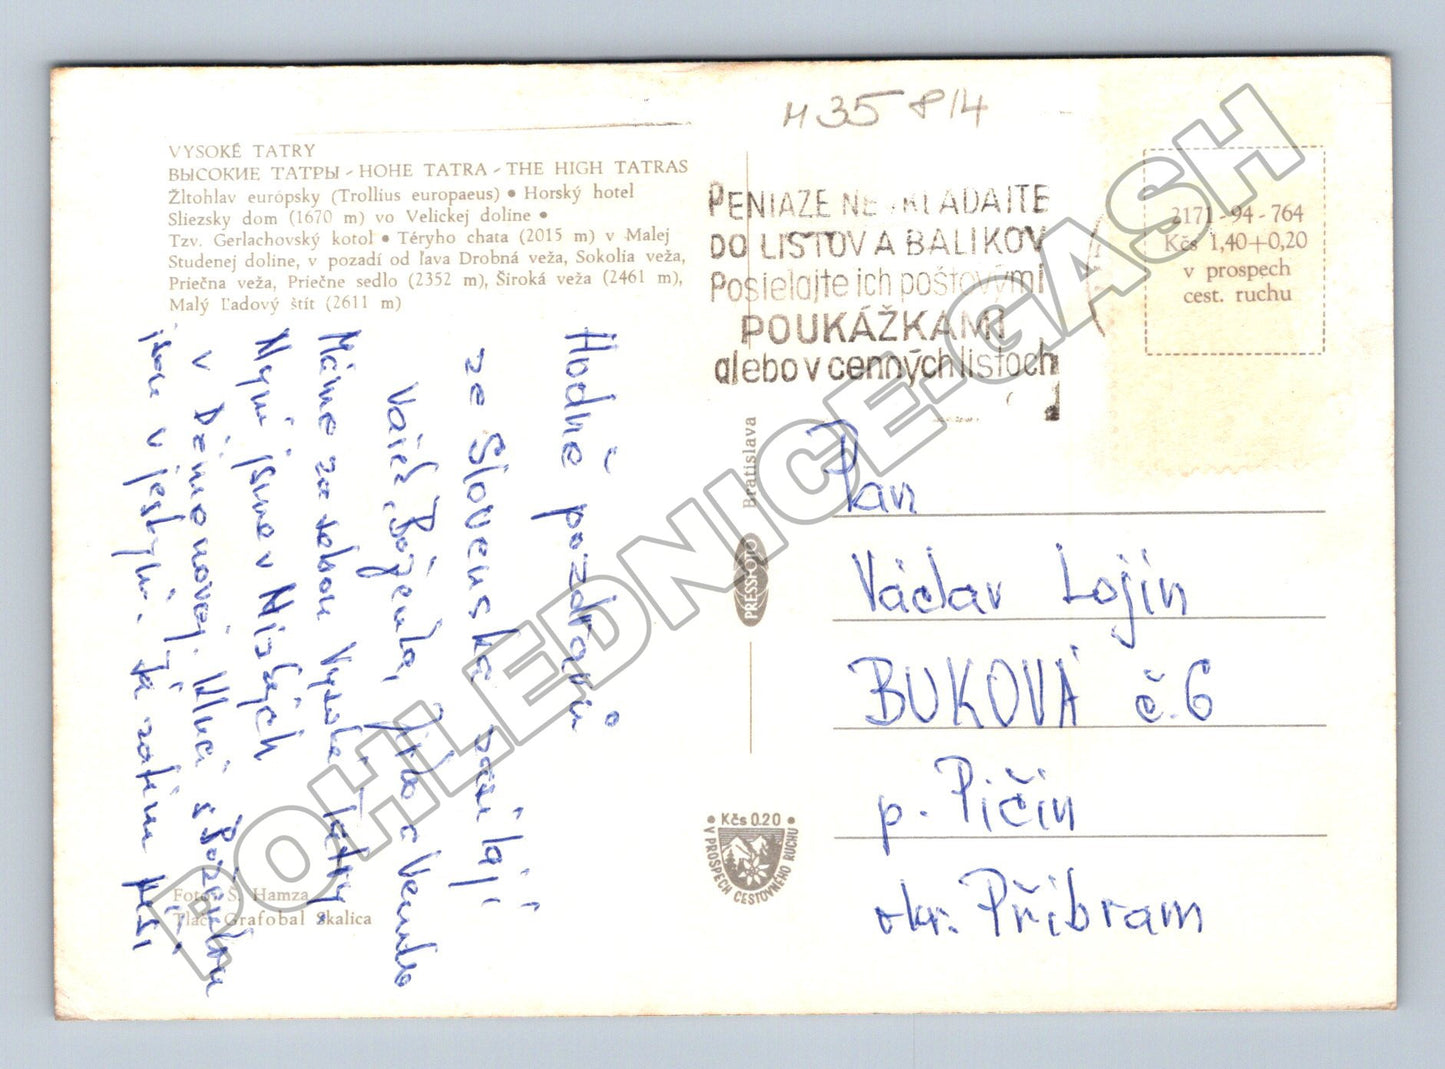 VYSOKÉ TATRY
ВЫСОКИЕ ТАТРЫ - HOHE TATRA - THE HIGH TATRAS
Žltohlav európsky (Trollius europaeus) • Horský hotel
Sliezsky dom (1670 m) vo Velickej doline •
Tzv. Gerlachovský kotol • Téryho chata (2015 m) v Malej
Studenej doline, v pozadí od ľava Drobná veža, Sokolia veža,
Priečna veža, Priečne sedlo (2352 m), Široká veža (2461 m),
Malý Ľadový štít (2611 m)
Hodně pozdravů
ze Slovenska
Vašek, Boženka, Jirka a Vendu
Máme za sebou Vysoké Tatry
Nyní jsme v Nízkých
v Děmenovej. Kluci s Boženkou
jsou v jeskyni. Já zatím
Foto: Š. Hamza
Tlač: Grafobal Skalica
M 35 8/4
PENIAZE NEVKLADAJTE
DO LISTOV A BALÍKOV
Posielajte ich poštovými
POUKÁŽKAMI
alebo v cenných listoch
2171 - 94 - 764
Kčs 1,40+0,20
v prospech
cest. ruchu
Bratislava
PRESSFOTO
• Kčs 0.20 •
V PROSPECH CESTOVNÉHO RUCHU
Pan
Václav Lojín
BUKOVÁ č. 6
p. Pičín
okr. Příbram
POHLEDNICE.GASH